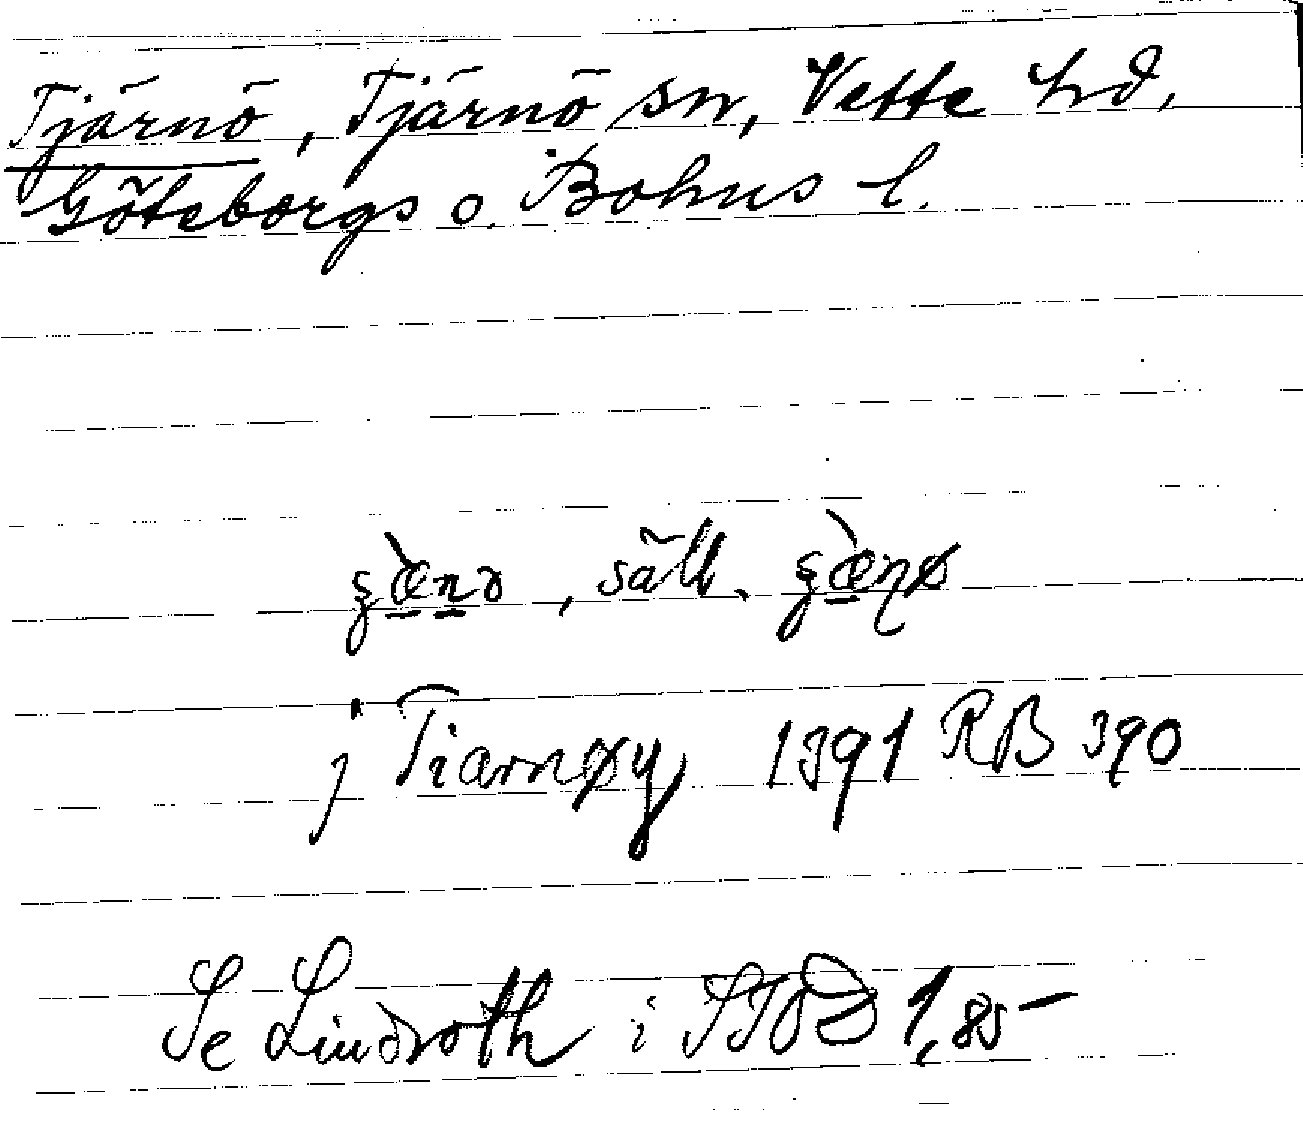 Tjärnö, Tjärnö sn, Vette hd,
Göteborgs o. Bohus l.
, säll.
j Tiarnøy 1391 RB 390
Se Lindroth i